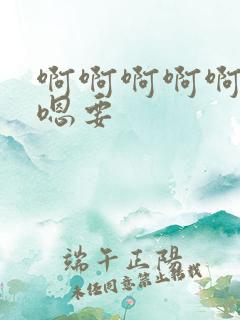 啊啊啊啊啊
嗯要
端午正阳
未经同意禁止转载